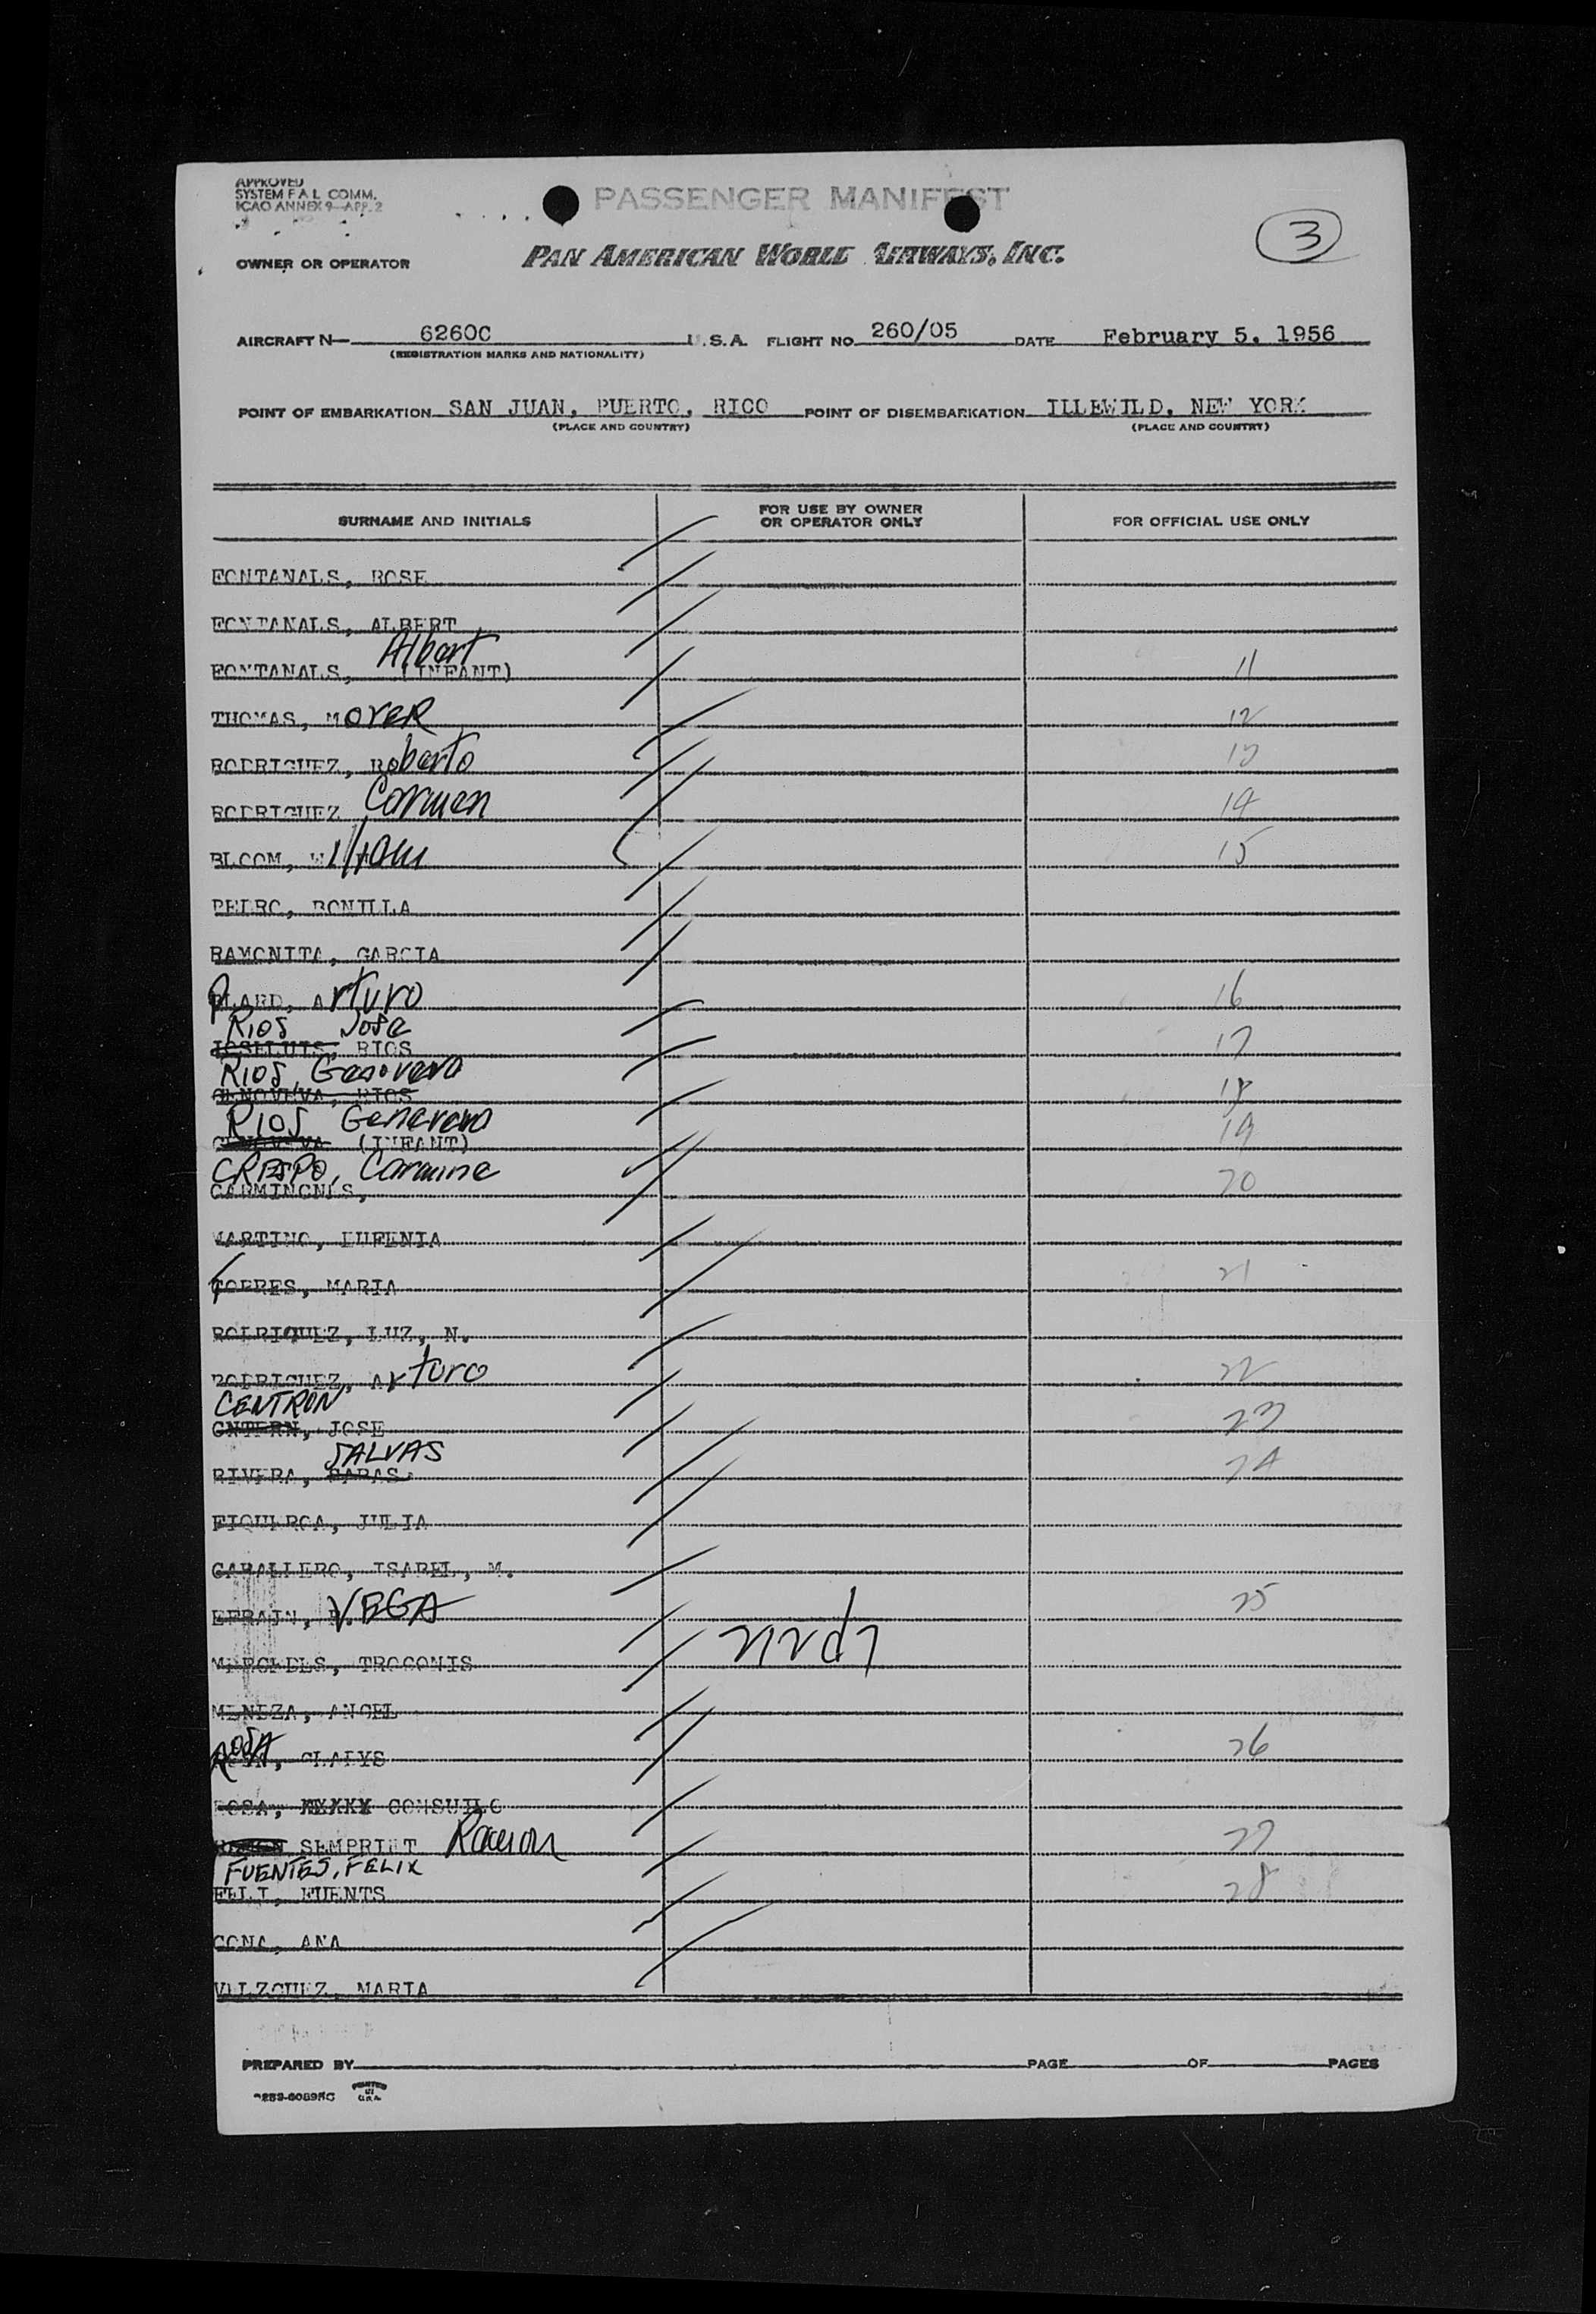 APPROVED
SYSTEM F A L COMM.
ICAO ANNEX 9-APP. 2
PASSENGER MANIFEST
3
OWNER OR OPERATOR PAN AMERICAN WORLD AIRWAYS, INC.
AIRCRAFT N 6260C U.S.A. FLIGHT NO. 260/05 DATE February 5, 1956
(REGISTRATION MARKS AND NATIONALITY)
POINT OF EMBARKATION SAN JUAN, PUERTO, RICO POINT OF DISEMBARKATION ILLEWILD, NEW YORK
(PLACE AND COUNTRY) (PLACE AND COUNTRY)
SURNAME AND INITIALS FOR USE BY OWNER OR OPERATOR ONLY FOR OFFICIAL USE ONLY
FONTANALS, ROSE
FONTANALS, ALBERT
Albert
FONTANALS, (INFANT) 11
THOMAS, MOYER 12
RODRIGUEZ, Roberto 13
RODRIGUEZ Carmen 14
BLOOM, William 15
PEDRO, BONILLA
RAMONITA, GARCIA
PLARD, Arturo 16
RIOS Jose
JOSELUIS, RIOS 17
RIOS, Genoveva
GENOVEVA, RIOS 18
RIOS Genereva
GENOVEVA (INFANT) 19
CRESPO, Carmine
CARMINGNES, 20
MARTINO, EUFENIA
TORRES, MARIA 21
RODRIQUEZ, LUZ, N.
RODRIGUEZ, Arturo 22
CENTRON
CNTERN, JOSE 23
SALVAS
RIVERA, BABAS. 24
FIQUEROA, JULIA
CABALLERO, ISABEL, M.
EFRAIN, VEGA 25
MERCEDES, TROCONIS
MENEZA, ANGEL
ROSA, GLADYS 26
ROSA, CONSUELO
RAMON SEMPRIET Ramon 27
FUENTES, FELIX
FELI, FUENTS 28
CONA, ANA
VELZQUEZ, MARIA
PREPARED BY PAGE OF PAGES
PRINTED IN U.S.A.